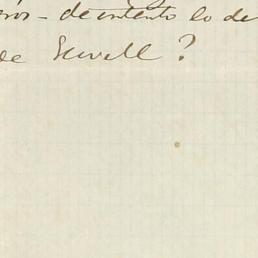 de intento lo de
de Sewell?